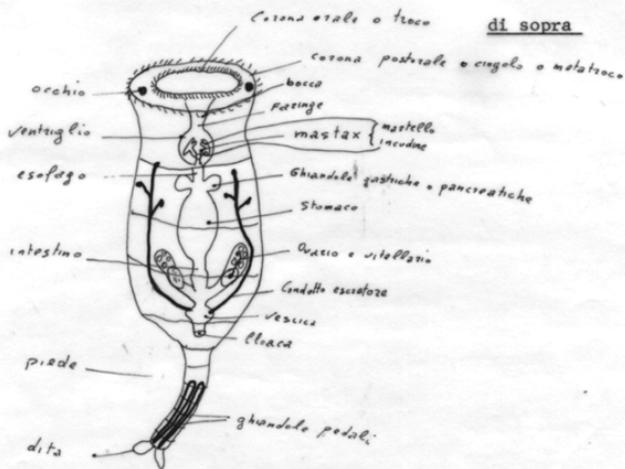 Corona orale o troco
di sopra
corona postorale o cingolo o metatroco
occhio
bocca
Faringe
ventriglio
mastax { martello
incudine
esofago
Ghiandole gastriche o pancreatiche
Stomaco
intestino
Ovario e vitellario
Condotto escretore
vescica
Cloaca
piede
ghiandole pedali
dita